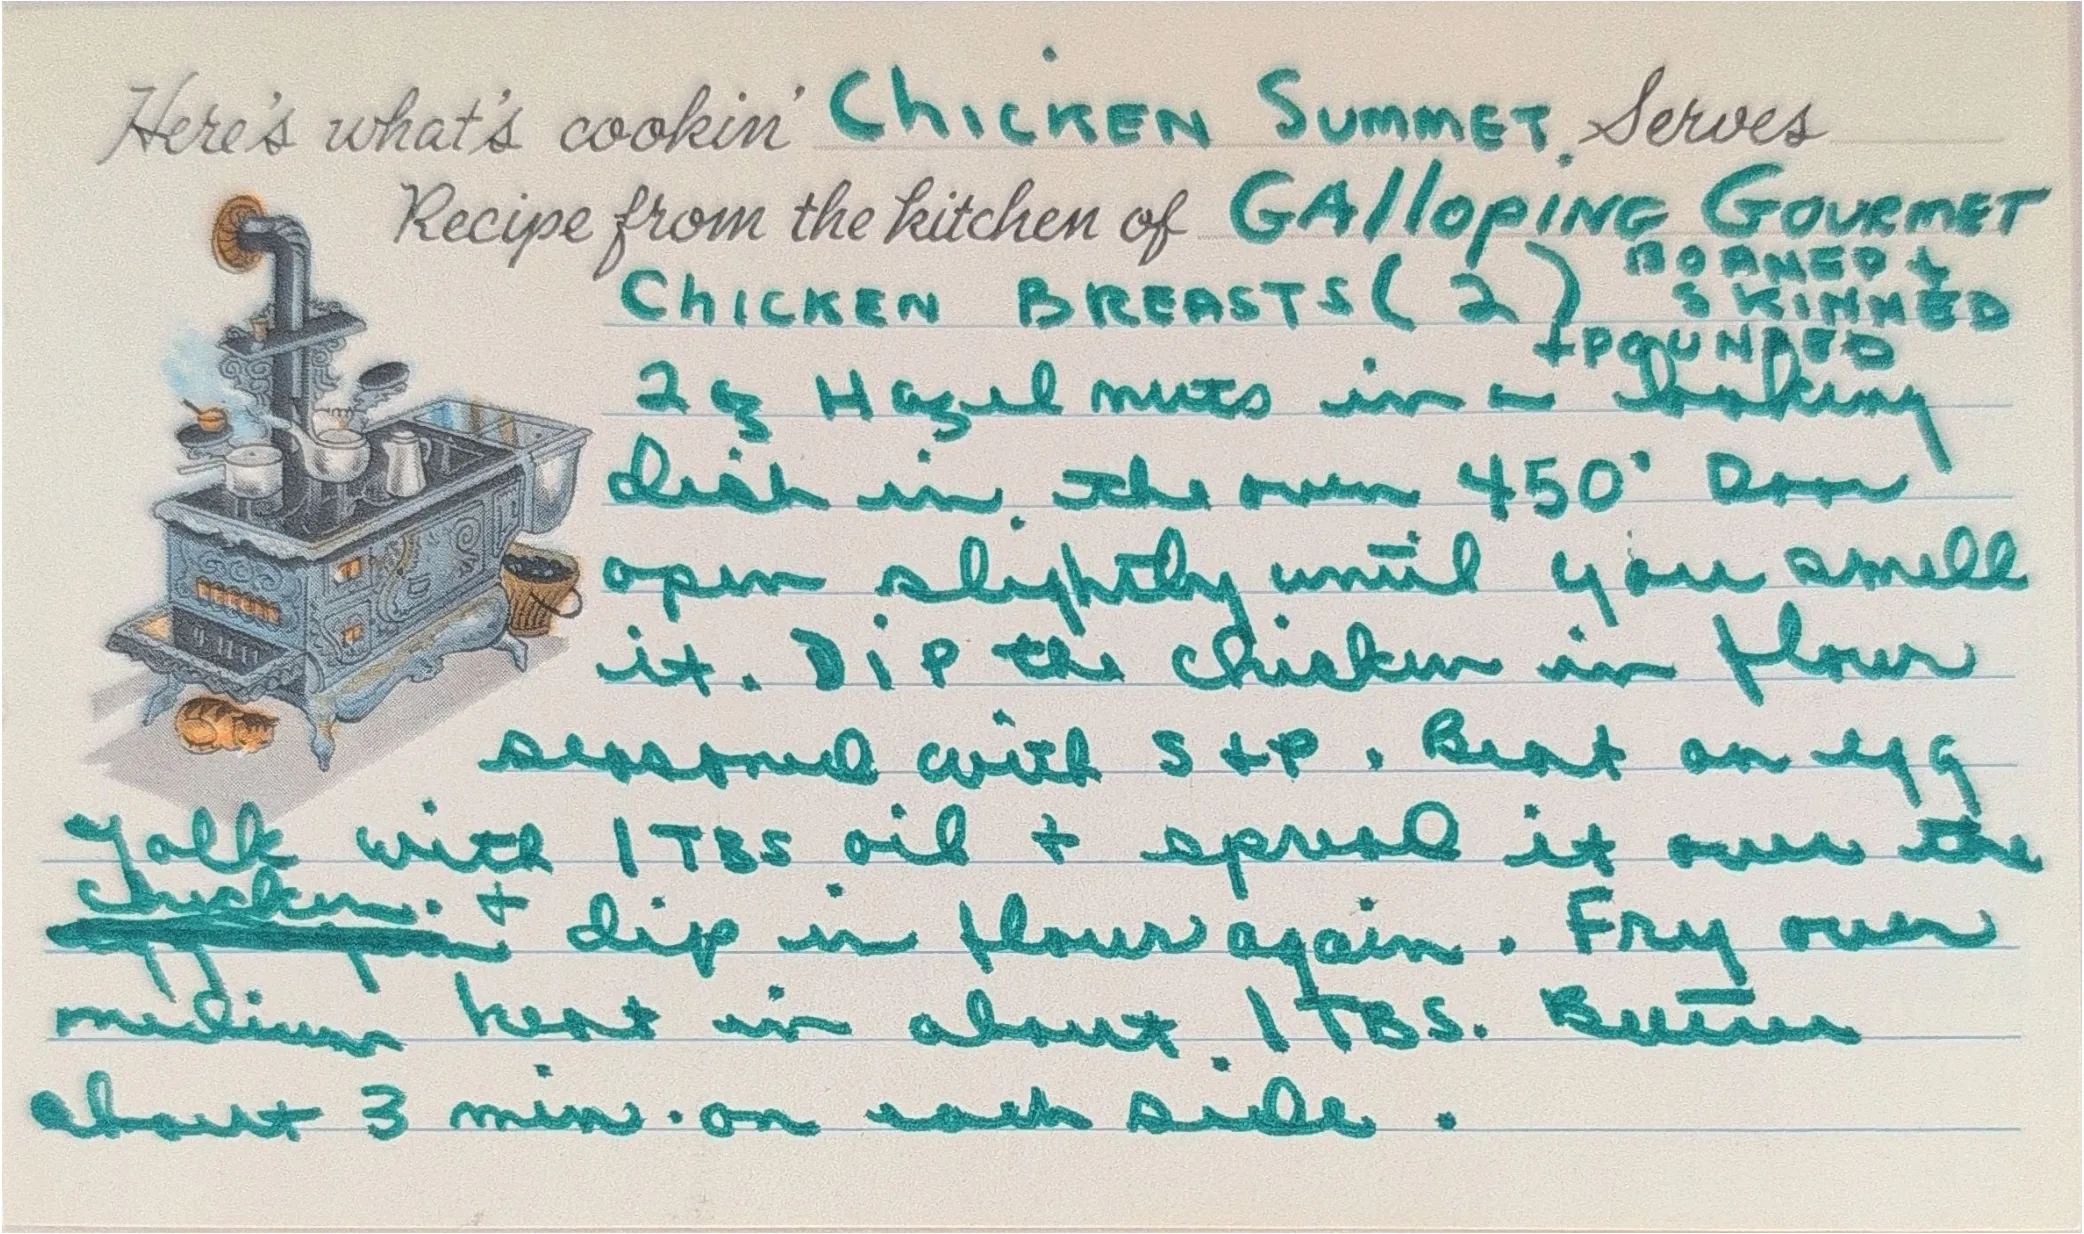 Here's what's cookin' Chicken Summet. Serves
Recipe from the kitchen of Galloping Gourmet
Chicken Breasts (2) Boaned +
Skinned
+ Pounded
2 oz Hazel nuts in a baking
dish in the oven 450° Door
open slightly until you smell
it. Dip the chicken in flour
seasoned with S + P. Beat an egg
yolk with 1 TBS oil + spread it over the
chicken. + dip in flour again. Fry over
medium heat in about 1 TBS. Butter
about 3 min. on each side.